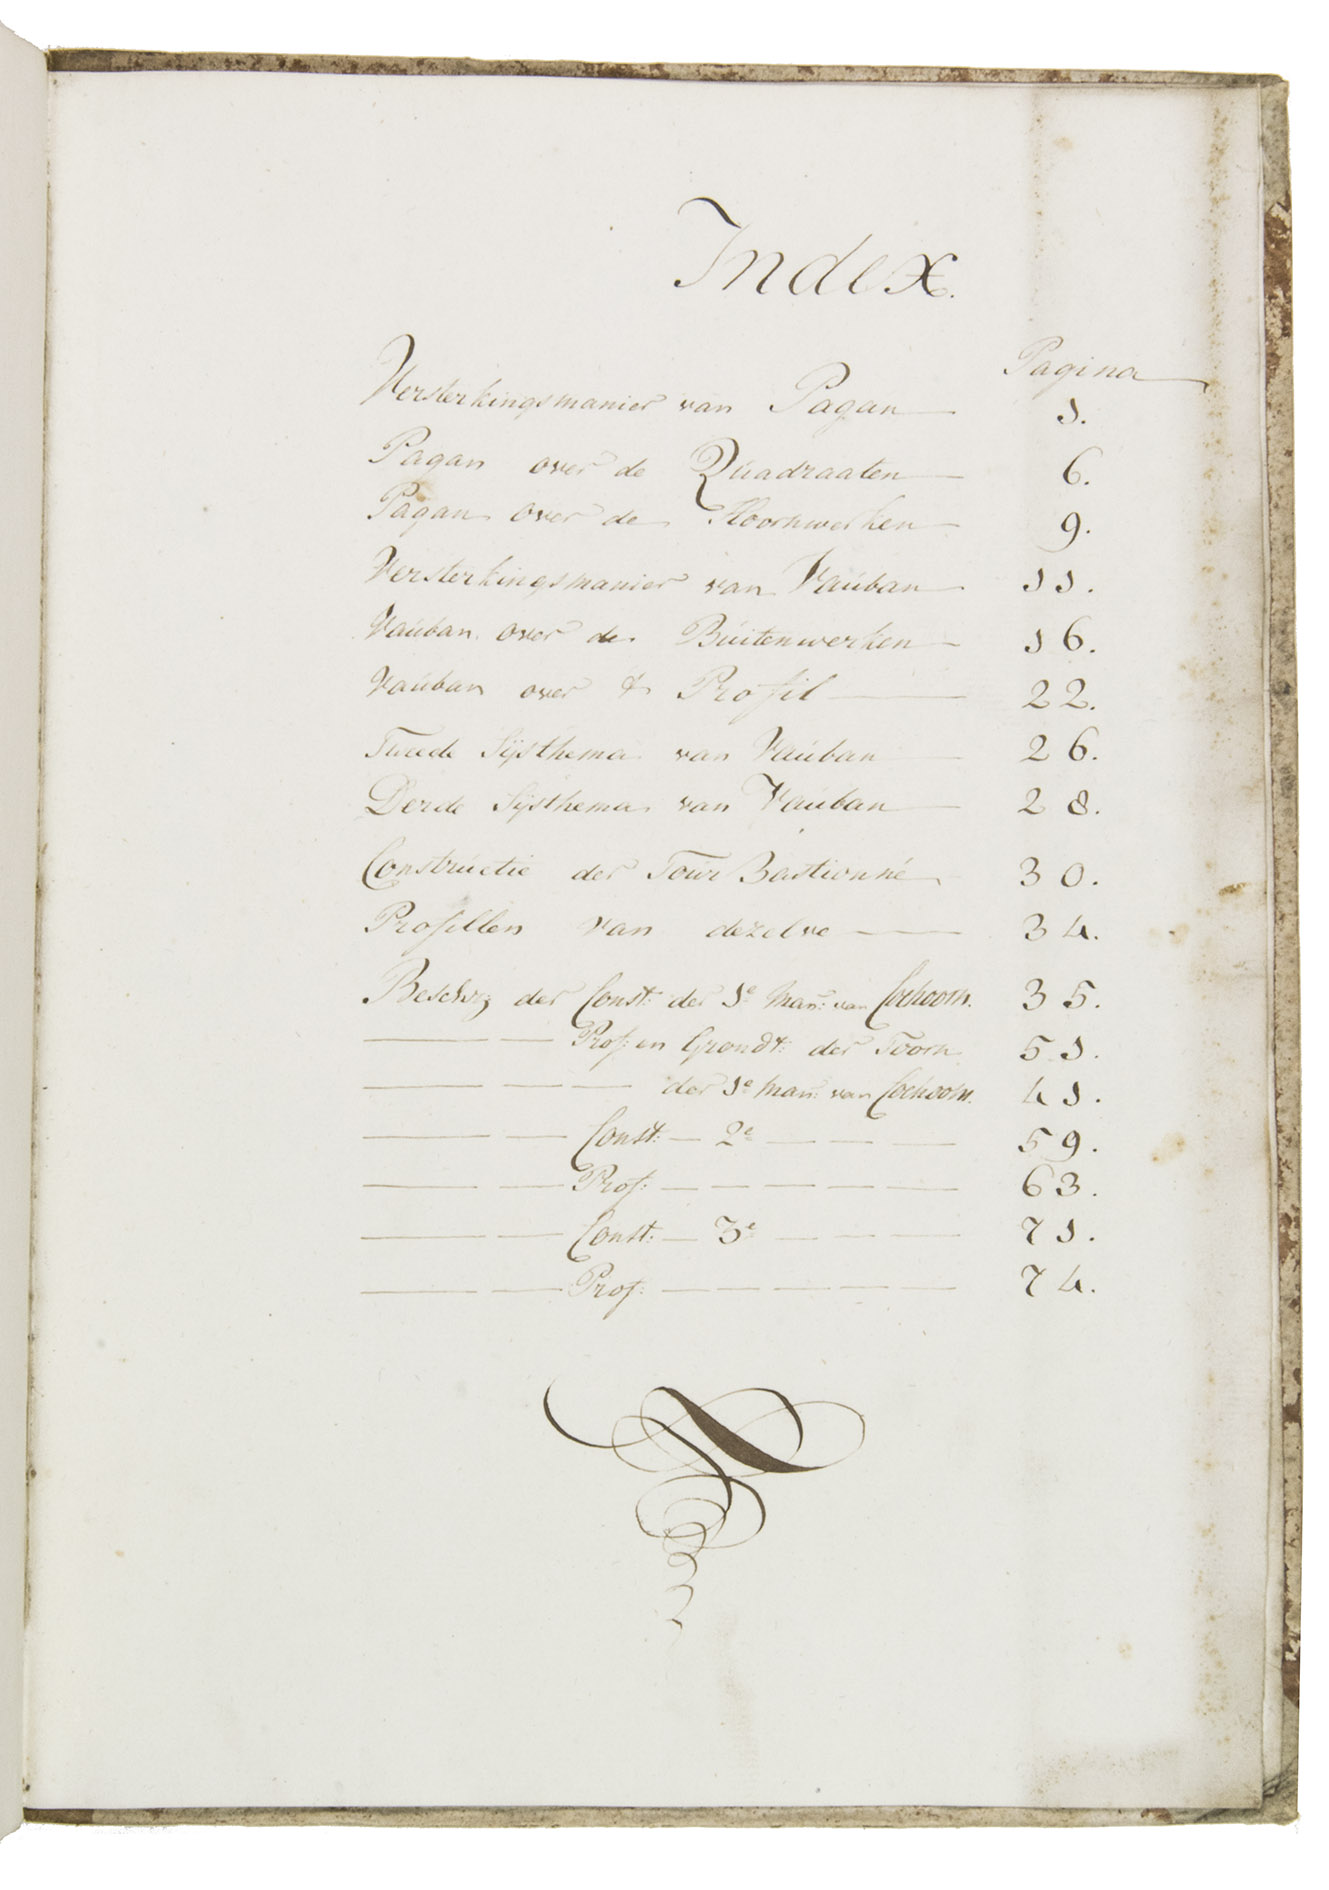 Index.
Pagina
Versterkingsmanier van Pagan — 1.
Pagan over de Quadraaten — 6.
Pagan over de Hoornwerken — 9.
Versterkingsmanier van Vauban — 11.
Vauban over de Buitenwerken — 16.
Vauban over 't Profil — 22.
Tweede Sÿsthema van Vauban — 26.
Derde Sÿsthema van Vauban — 28.
Constructie der Tour Bastionné 30.
Profillen van dezelve — 34.
Beschrz der Const: der 1e Man: van Coehoorn. 35.
— — Prof: en Grondt: der Toorn 51.
— — — der 1e Man: van Coehoorn. 41.
— — Const: — 2e — — — 59.
— — Prof: — — — — — — 63.
— — Const: — 3e — — — 71.
— — Prof: — — — — — — 74.